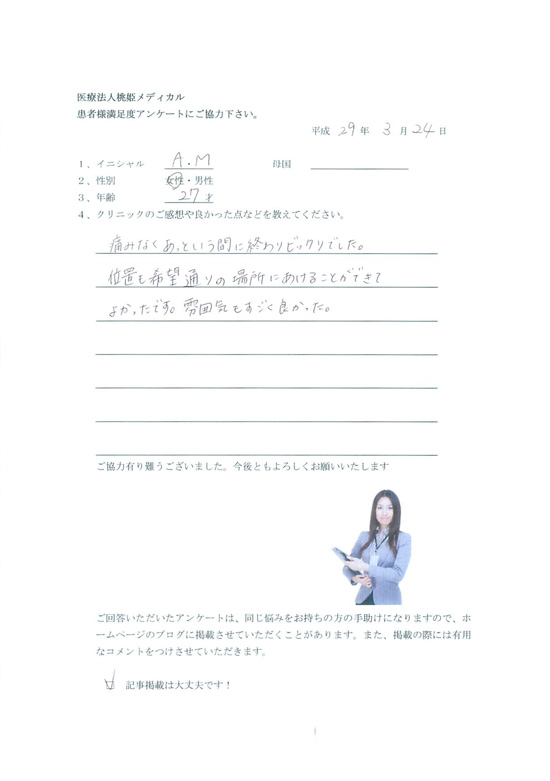 医療法人桃姫メディカル
患者様満足度アンケートにご協力下さい。
平成 29 年 3 月 24 日
1、イニシャル A.M 母国
2、性別 女性・男性
3、年齢 27才
4、クリニックのご感想や良かった点などを教えてください。
痛みなくあっという間に終わりビックリでした。
位置も希望通りの場所にあけることができて
よかったです。雰囲気もすごく良かった。
ご協力有り難うございました。今後ともよろしくお願いいたします
ご回答いただいたアンケートは、同じ悩みをお持ちの方の手助けになりますので、ホ
ームページのブログに掲載させていただくことがあります。また、掲載の際には有用
なコメントをつけさせていただきます。
記事掲載は大丈夫です！